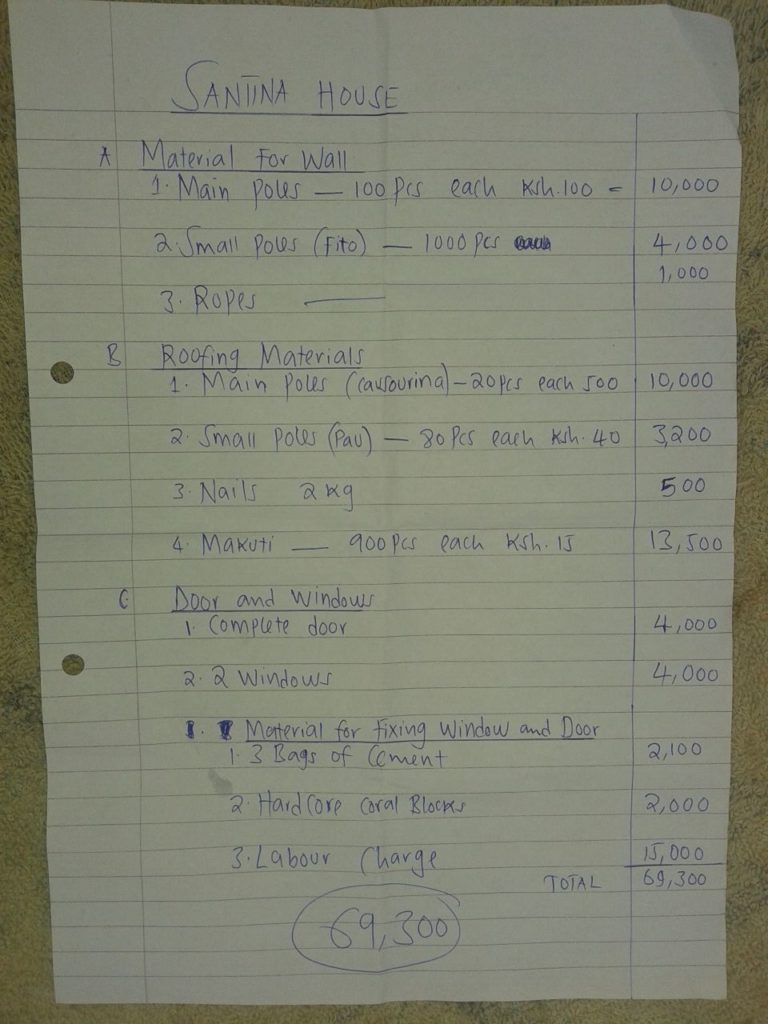 SANTINA HOUSE
A Material For Wall
1. Main poles — 100 pcs each Ksh.100 = 10,000
2. Small poles (Fito) — 1000 pcs 4,000
1,000
3. Ropes —
B Roofing Materials
1. Main poles (causourina) – 20 pcs each 500 10,000
2. Small poles (Pau) — 80 pcs each Ksh. 40 3,200
3. Nails 2 kg 500
4. Makuti — 900 pcs each Ksh. 15 13,500
C Door and Windows
1. Complete door 4,000
2. 2 Windows 4,000
Material for fixing Window and Door
1. 3 Bags of Cement 2,100
2. Hardcore coral Blocks 2,000
3. Labour Charge 15,000
TOTAL 69,300
69,300